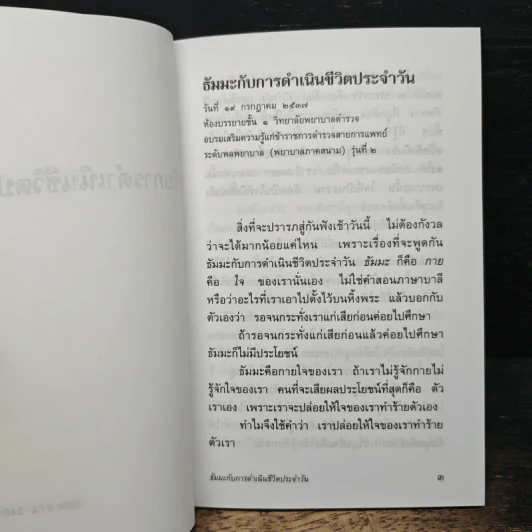 ธัมมะกับการดำเนินชีวิตประจำวัน
วันที่ ๑๙ กรกฎาคม ๒๕๓๗
ห้องบรรยายชั้น ๑ วิทยาลัยพยาบาลตำรวจ
อบรมเสริมความรู้แก่ข้าราชการตำรวจสายการแพทย์
ระดับพลพยาบาล (พยาบาลภาคสนาม) รุ่นที่ ๒
สิ่งที่จะปรารภสู่กันฟังเช้าวันนี้ ไม่ต้องกังวล
ว่าจะได้มากน้อยแค่ไหน เพราะเรื่องที่จะพูดกัน
ธัมมะกับการดำเนินชีวิตประจำวัน ธัมมะ ก็คือ กาย
คือ ใจ ของเรานั่นเอง ไม่ใช่คำสอนภาษาบาลี
หรือว่าอะไรที่เราเอาไปตั้งไว้บนหิ้งพระ แล้วบอกกับ
ตัวเองว่า รอจนกระทั่งเราแก่เสียก่อนค่อยไปศึกษา
ถ้ารอจนกระทั่งเราแก่เสียก่อนแล้วค่อยไปศึกษา
ธัมมะก็ไม่มีประโยชน์
ธัมมะคือกายใจของเรา ถ้าเราไม่รู้จักกายไม่
รู้จักใจของเรา คนที่จะเสียผลประโยชน์ที่สุดก็คือ ตัว
เราเอง เพราะเราจะปล่อยให้ใจของเราทำร้ายตัวเอง
ทำไมจึงใช้คำว่า เราปล่อยให้ใจของเราทำร้าย
ตัวเรา
ธัมมะกับการดำเนินชีวิตประจำวัน
๓